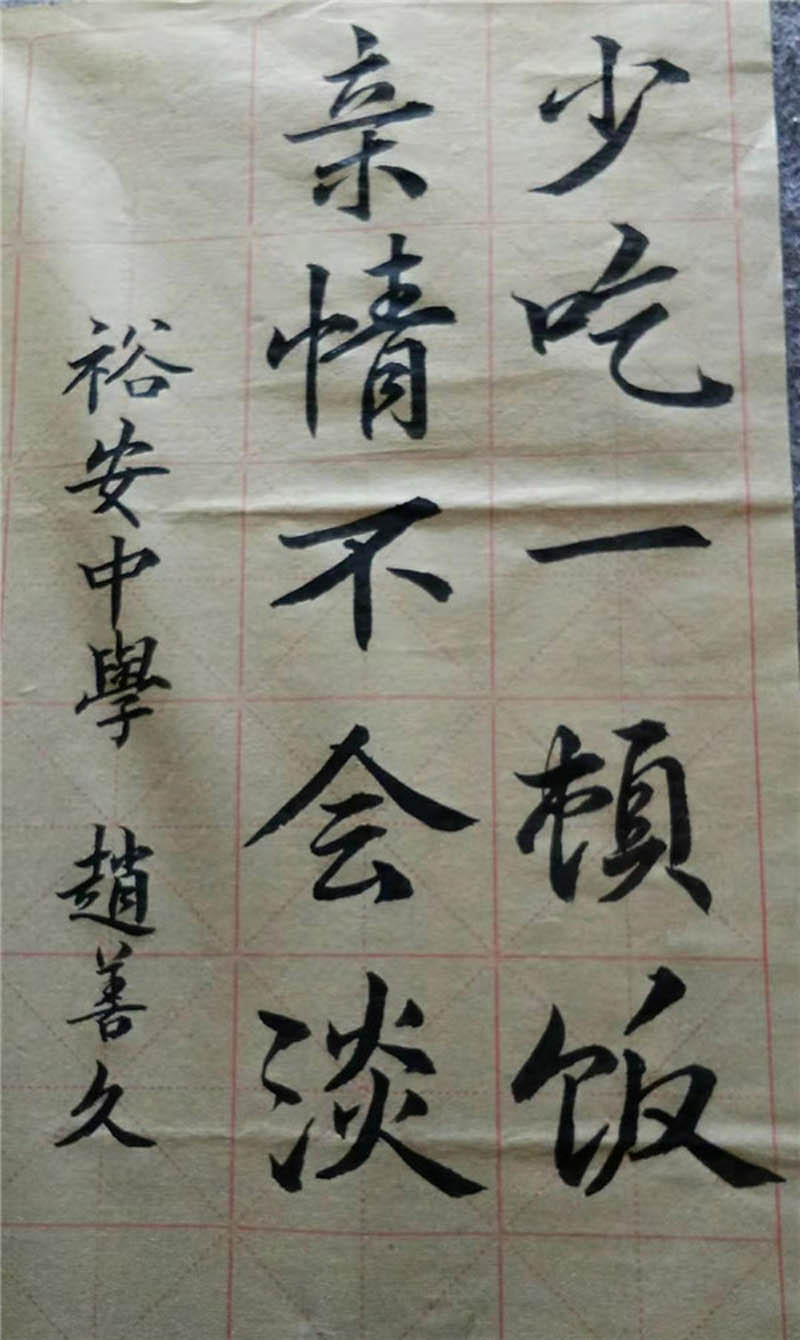 少吃一頓饭
亲情不会淡
裕安中學 趙善久